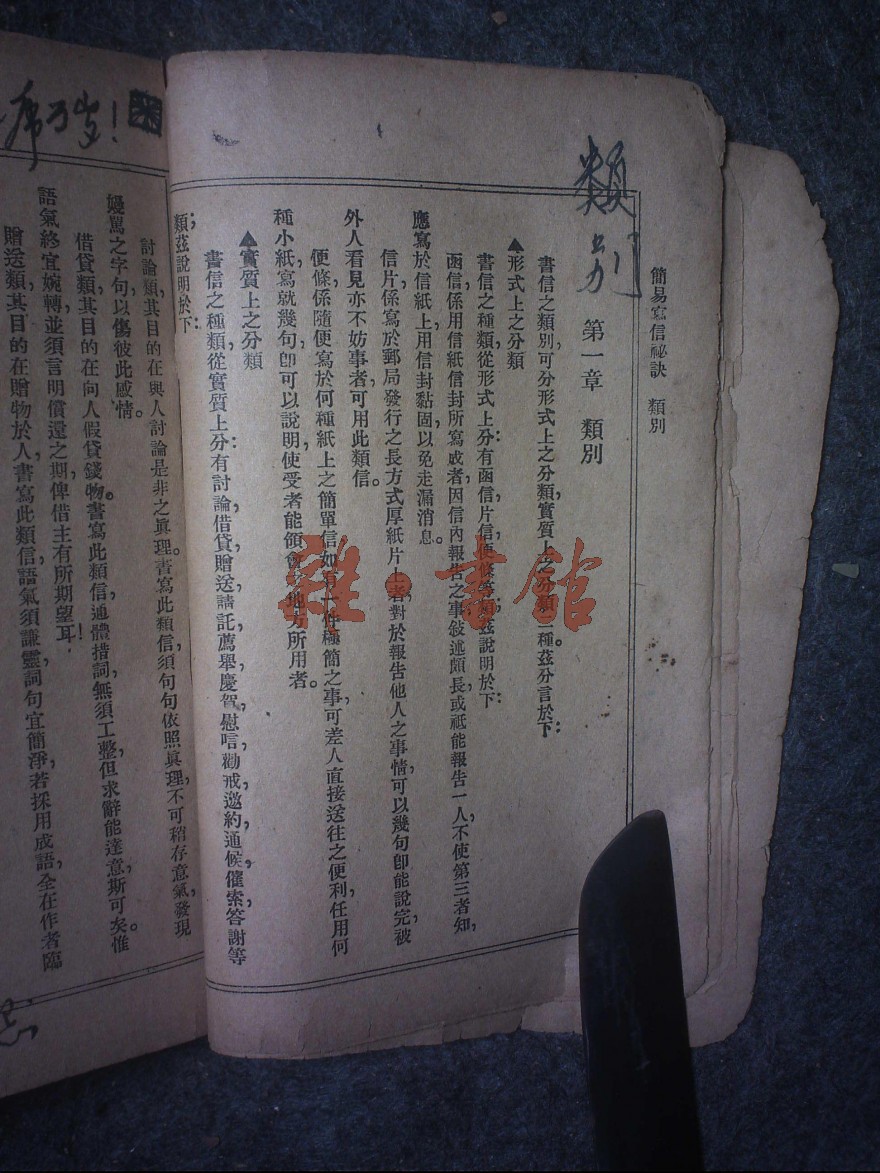 簡易寫信祕訣　類別
類別
第一章　類別
書信之類別,可分形式上之分類,實質上之分類二種,茲分言於下:
▲形式上之分類
書信之種類,從形式上分:有函信,片信,便條等類,茲說明於下:
函信係用信紙信封所寫成者,因信內報告之事,敍述頗長,或祇能報告一人,不使第三者知,
應寫於信紙上,用信封黏固,以免走漏消息。
信片係寫於郵局發行之長方式厚紙片上者,對於報告他人之事情,可以幾句卽能說完,被
外人看見亦不妨事者,可用此類信。
便條係隨便寫於何種紙上之簡單信,如有一件極簡之事,可差人直接送往之便利,任用何
種小紙,寫就幾句,卽可以說明,使受者能領會之地方所用者。
▲實質上之分類
書信之種類,從實質上分:有討論,借貸,贈送,請託,薦舉,慶賀,慰唁,勸戒,邀約,通候,催索,答謝等
類,茲說明於下:
討論類,其目的在與人討論是非之眞理。書寫此類信,須句句依照眞理,不可稍存意氣,發現
嫚罵之字句,以傷彼此感情。
借貸類,其目的在向人假貸錢物。書寫此類信,通體措詞,無須工整,但求辭能達意斯可矣。惟
語氣終宜婉轉,並須言明償還之期,俾借主有所期望耳!
贈送類,其目的在贈物於人,書寫此類信,語氣須謙靈,詞句宜簡淨,若採用成語,全在作者臨
雜·書館